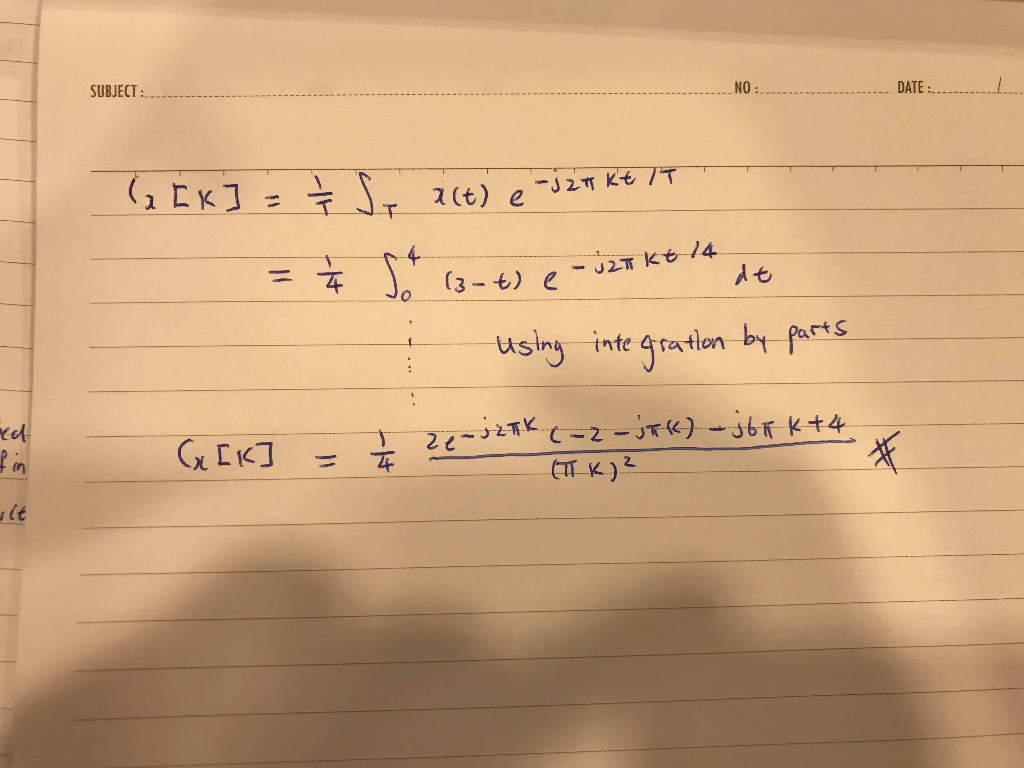 SUBJECT: NO: DATE: /
Cx [K] = 1/T ∫T x(t) e^-j2πKt/T
= 1/4 ∫0^4 (3-t) e^-j2πKt/4 dt
using integration by parts
Cx [K] = 1/4 (2e^-j2πK (-2-jπK) -j6πK+4)/(πK)^2 #